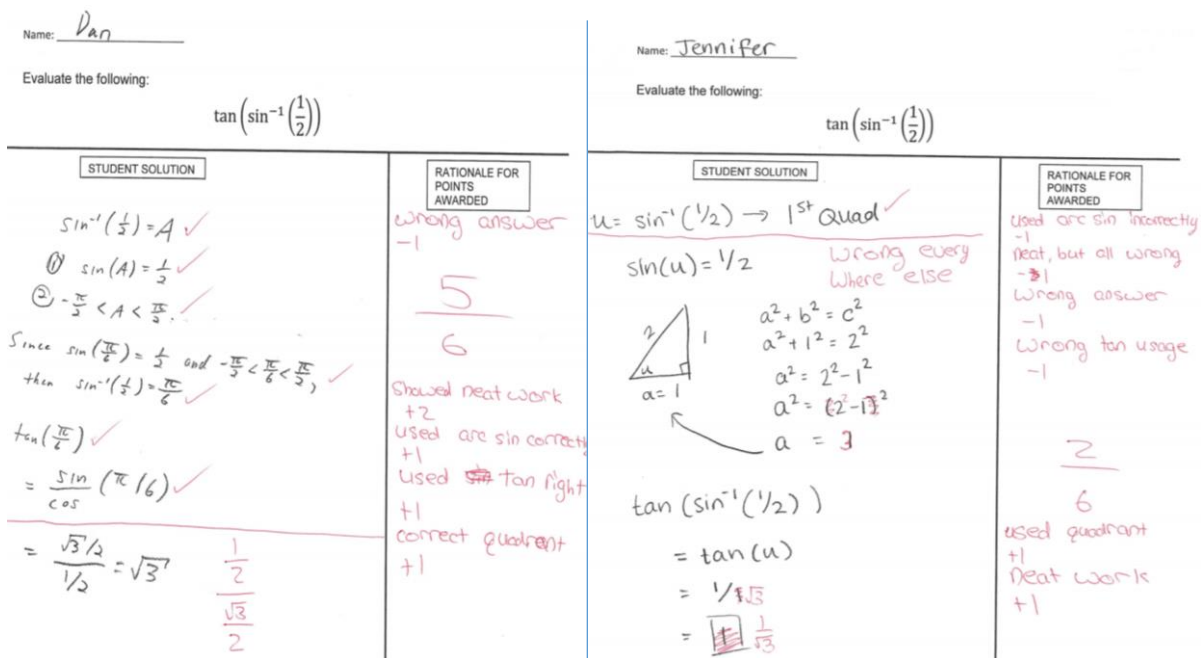 Name: Dan
Evaluate the following:
tan(sin⁻¹(1/2))
STUDENT SOLUTION
sin⁻¹(1/2) = A ✓
① sin(A) = 1/2 ✓
② -π/2 < A < π/2. ✓
Since sin(π/6) = 1/2 and -π/2 < π/6 < π/2, ✓
then sin⁻¹(1/2) = π/6 ✓
tan(π/6) ✓
= sin/cos (π/6) ✓
= (√3/2)/(1/2) = √3
(1/2)/(√3/2)
RATIONALE FOR
POINTS
AWARDED
wrong answer
-1
5/6
Showed neat work
+2
used arc sin correctl
+1
used tan right
+1
correct quadrent
+1
Name: Jennifer
Evaluate the following:
tan(sin⁻¹(1/2))
STUDENT SOLUTION
u = sin⁻¹(1/2) → 1st Quad ✓
sin(u) = 1/2
Wrong every
where else
2
1
u
a = 1
a² + b² = c²
a² + 1² = 2²
a² = 2² - 1²
a² = (2² - 1)²
a = 3
tan(sin⁻¹(1/2))
= tan(u)
= 1/√3
= 1/√3
RATIONALE FOR
POINTS
AWARDED
used arc sin incorrectly
-1
neat, but all wrong
-1
Wrong answer
-1
Wrong tan usage
-1
2/6
used quadrant
+1
Neat work
+1